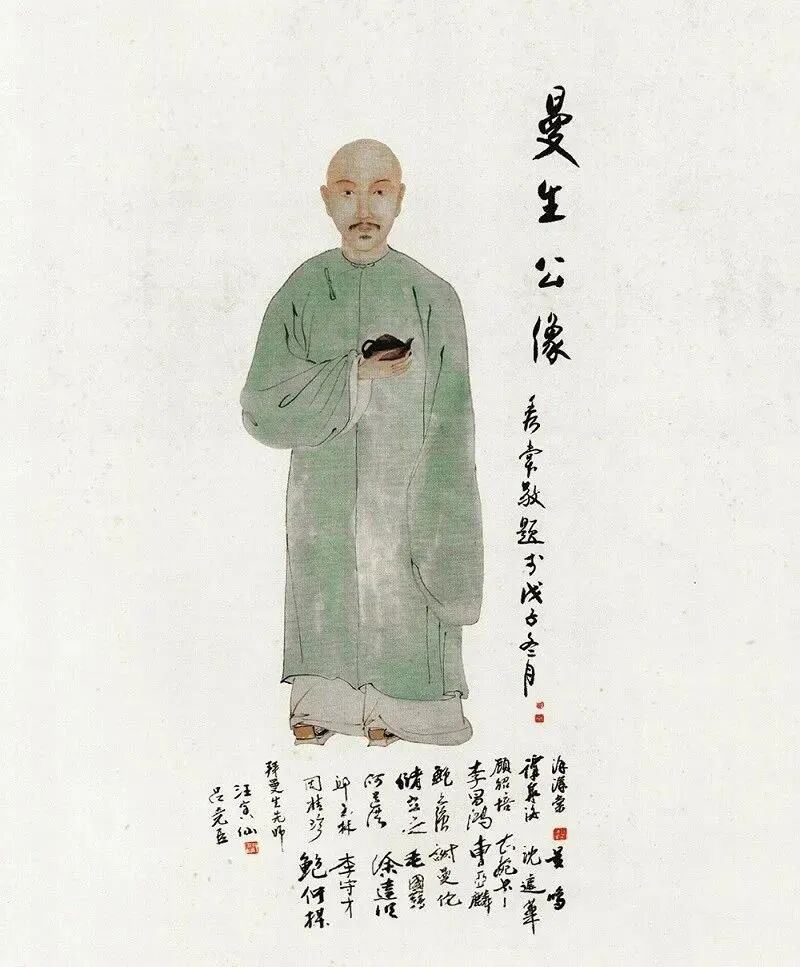 曼生公像
秀棠敬题于戊子冬月
徐汉棠 吴鸣
谭泉海 沈遽华
顾绍培
李昌鸿 曹亚麟
鲍志强 谢曼伦
储立之 毛國强
何道洪 徐達明
邱玉林 李守才
周桂珍 鲍仲梅
拜曼生先师
汪寅仙
吕尧臣